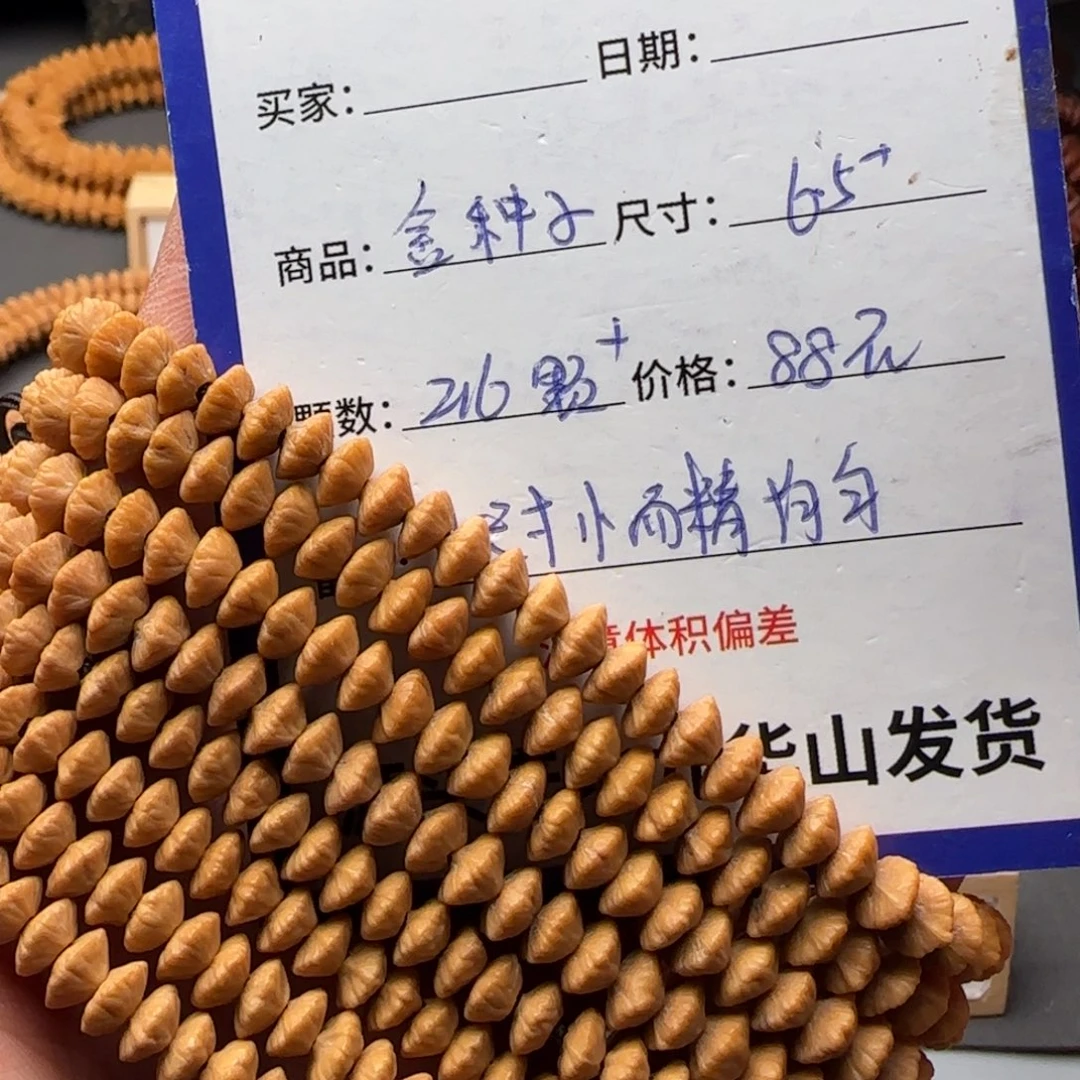 买家： 日期：
商品：金种子 尺寸：6.5+
颗数：216颗+ 价格：88元
尺寸小而精 均匀
体积偏差
华山发货